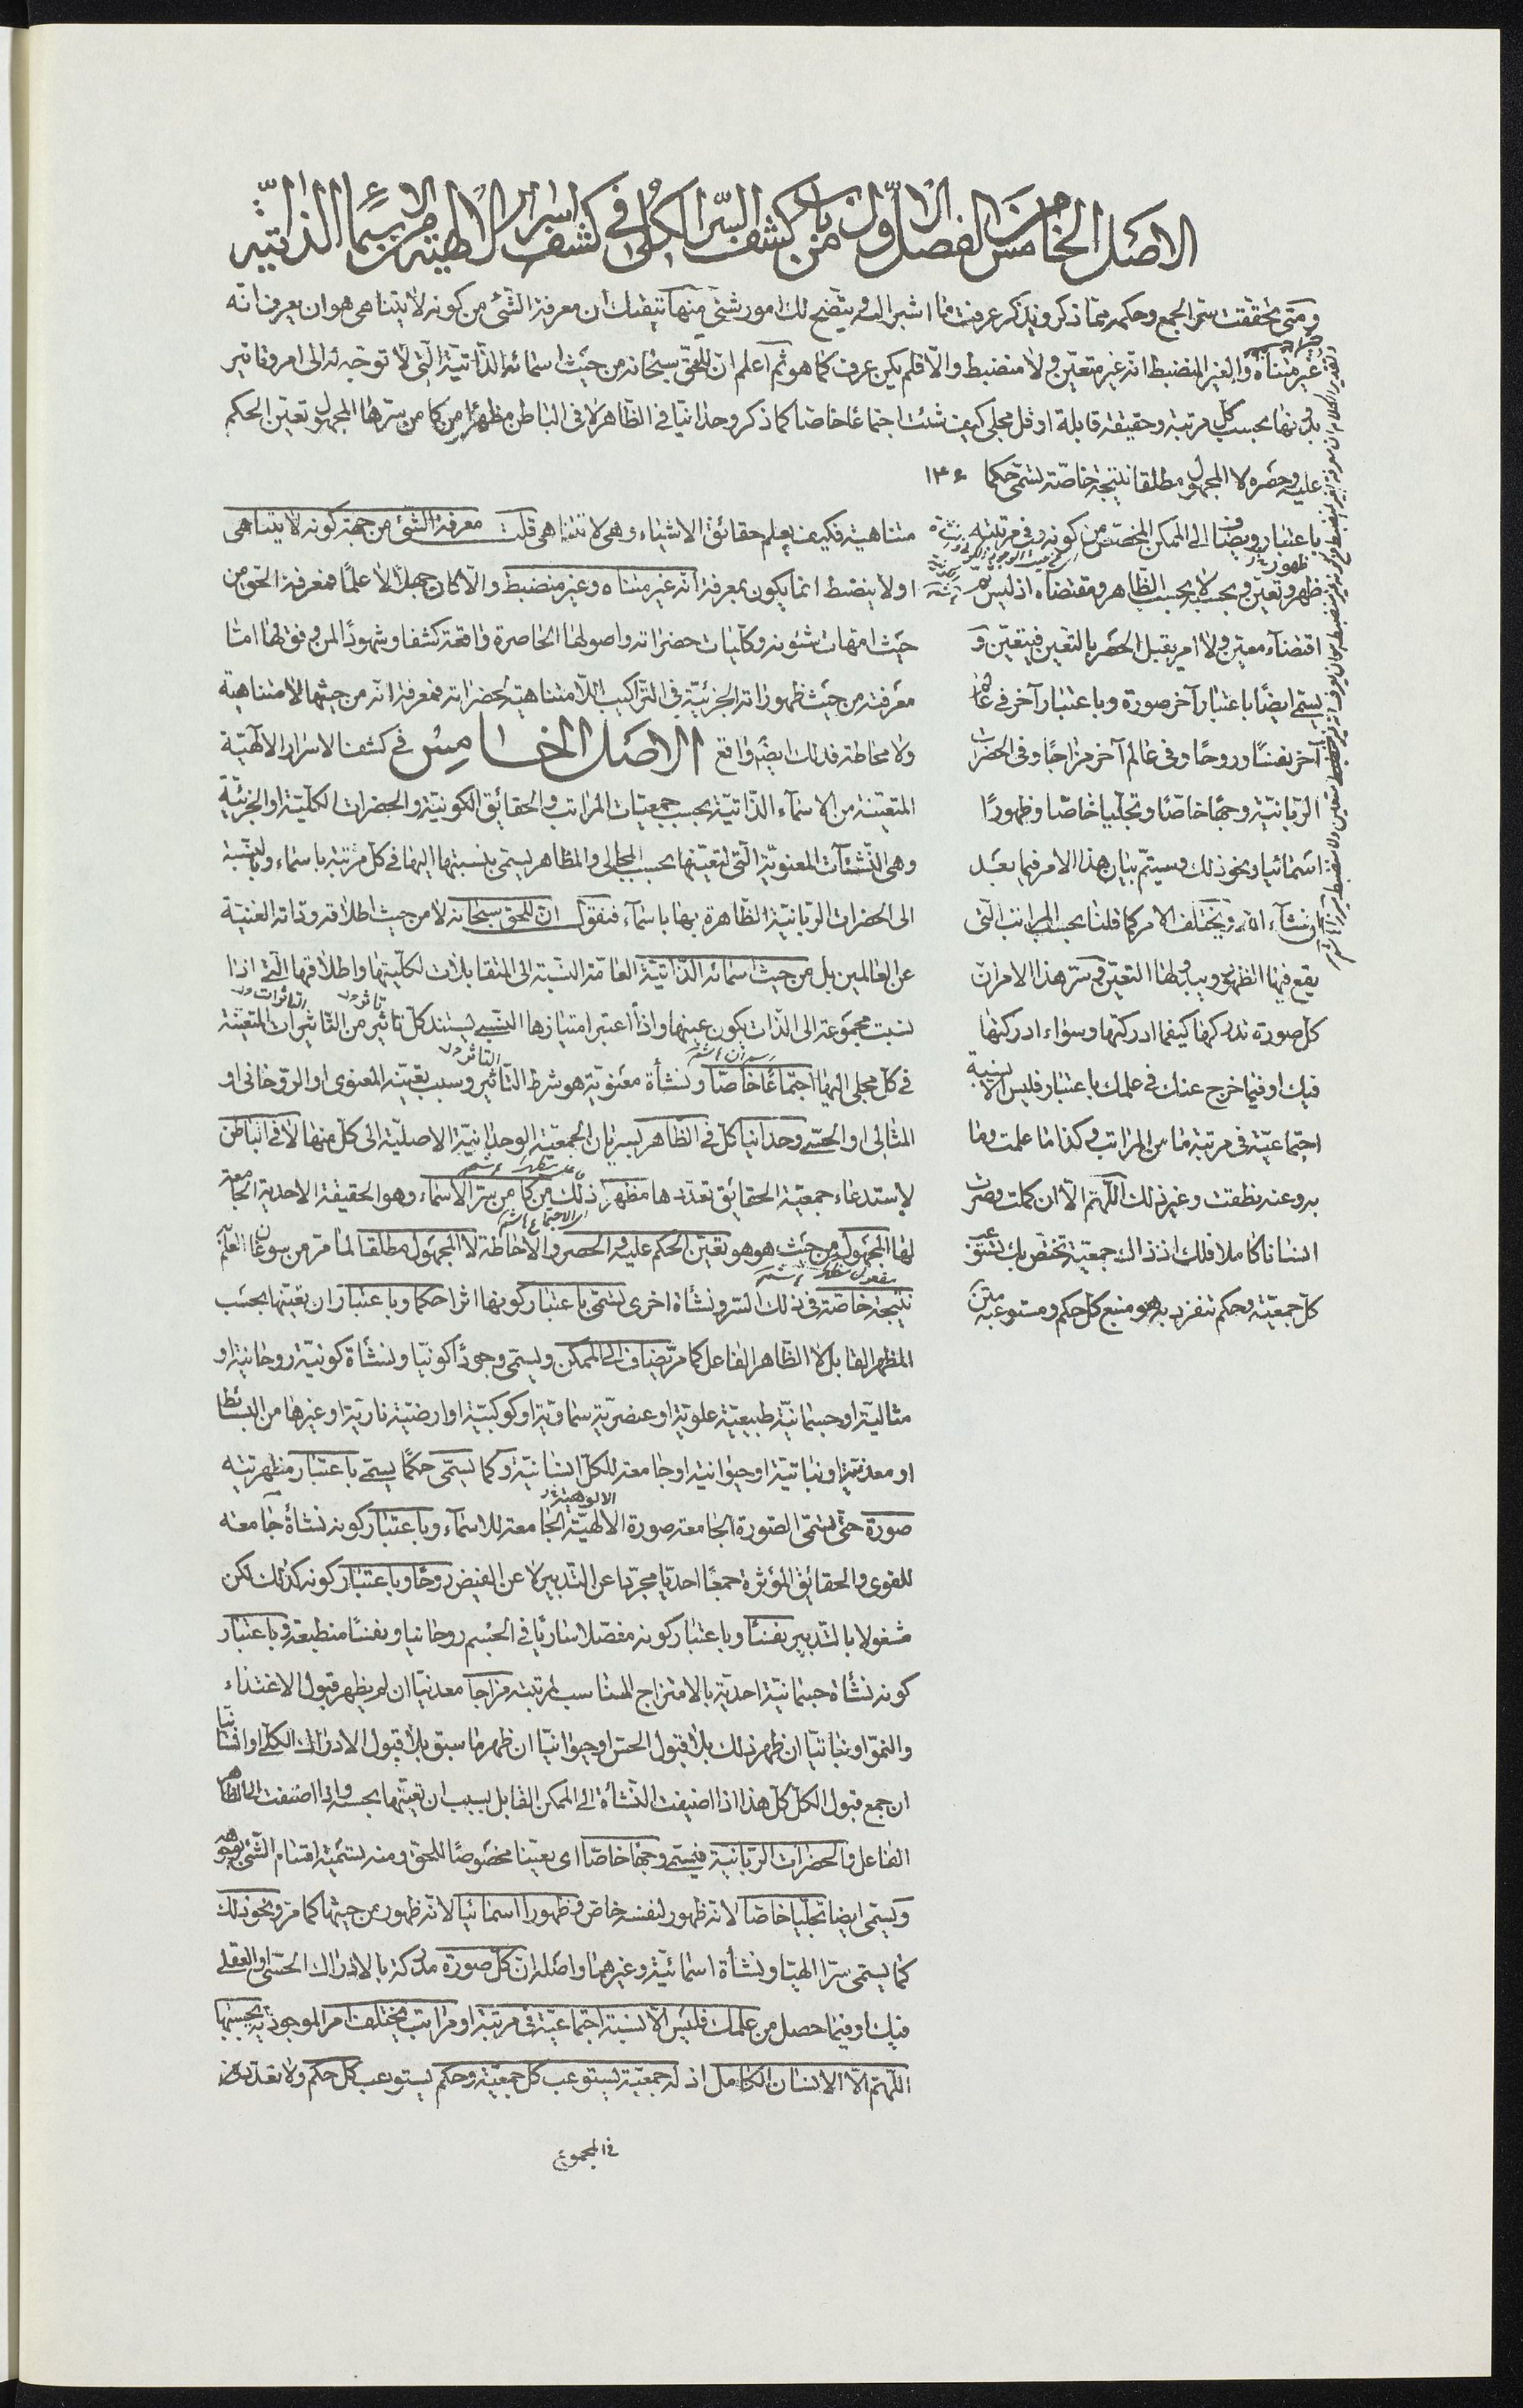 الاصل الخامس الفصل الاول من باب كشف السر الكلى فى كشف اسرار الالهية من الاسماء الذاتية
ومتى تحققت سر الجمع وحكمه مما ذكر ويذكر عرفت ما اشير اليه ويتضح لك امور شتى منها تيقنك ان معرفة الشئ من كونه لا يتناهى هو ان يعرف انه
غير متناه والغير المنضبط انه غير متعين ولا منضبط والا فلم يكن عرف كما هو ثم اعلم ان للحق سبحانه من حيث اسمائه الذاتية التى لا توجه له الى امر وتاثير
بدونها بحسب كل مرتبة وحقيقة قابلة او قل مجلى كيف شئت اجتماعا خاصا كما ذكر وحدانيا فى الظاهر لا فى الباطن مظهرا من كامن سرها المجهول تعين الحكم
عليه وحصره لا المجهول مطلقا نتيجة خاصة تسمى حكما ١٤٤
باعتبار ويضاف الى الممكن المختص من كونه فى مرتبته
ظهر وتعين بحسبه لا بحسب الظاهر ومقتضاه اذ ليس ثم
اقتضاء معين ولا امر يقبل الحصر بالتعين فيتعين و
يسمى ايضا باعتبار آخر صورة وباعتبار آخر فى عالم
آخر نفسا وروحا وفى عالم آخر مزاجا وفى الحضرات
الربانية وجها خاصا وتجليا خاصا وظهورا
اسمائيا ونحو ذلك وسيتم بيان هذا الامر فيما بعد
ان شاء الله ويختلف الامر كما قلنا بحسب المراتب التى
يقع فيها الظهور ويبدو لها التعين وسر هذا الامر ان
كل صورة تدركها كيفما ادركتها وسواء ادركتها
فيك او فيما خرج عنك فى علمك باعتبار فليس الا نسبة
اجتماعية فى مرتبة ما من المراتب وكذا ما علمت وما
به وعنه نطقت وغير ذلك اللهم الا ان كملت وصرت
انسانا كاملا فلك اذ ذاك جمعية تختص بك تستوعب
كل جمعية وحكم تنفرد به هو منبع كل حكم ومستوعبه متن
متناهية فكيف يعلم حقائق الاشياء وهى لا تتناهى قلت معرفة الشئ من جهة كونه لا يتناهى
او لا ينضبط انما يكون بمعرفة انه غير متناه وغير منضبط والا كان جهلا لا علما فمعرفة الحق من
حيث امهات شئونه وكليات حضراته واصولها الحاصرة واقعة كشفا وشهودا لمن وفق لها اما
معرفته من حيث ظهوراته الجزئية فى التراكيب اللامتناهية لحضراته فمعرفة انه من حيثها لا متناهية
ولا محاطة فذلك ايضا واقع الاصل الخامس فى كشف الاسرار الالهية
المتعينة من الاسماء الذاتية بحسب جمعيات المراتب والحقائق الكونية والحضرات الكلية او الجزئية
وهى النشئات المعنوية التى لتعينها بحسب المجالى والمظاهر يسمى بنسبتها اليها فى كل مرتبة باسماء وبالنسبة
الى الحضرات الربانية الظاهرة بها باسماء فنقول ان للحق سبحانه لا من حيث اطلاقه وذاته الغنية
عن العالمين بل من حيث اسمائه الذاتية العامة النسبة الى المتقابلات لكليتها واطلاقها التى اذا
نسبت مجموعة الى الذات يكون عينها واذا اعتبر امتيازها النسبى يستند كل تاثير من التاثيرات المتعينة
فى كل مجلى اليها اجتماعا خاصا ونشأة معنوية هو شرط التاثير وسبب تعينه المعنوى او الروحانى او
المثالى او الحسى وحدانيا كل فى الظاهر لسريان الجمعية الوحدانية الاصلية الى كل منها لا فى الباطن
لاستدعاء جمعية الحقائق تعددها مظهر ذلك من كامن سر الاسماء وهو الحقيقة الاحدية الجامعة
لها المجهول من حيث هو هو تعين الحكم عليه والحصر والاحاطة لا المجهول مطلقا لما مر من سوغان العلم به
نتيجة خاصة فى ذلك السر ونشأة اخرى تسمى باعتبار كونها اثرا حكما وباعتبار ان تعينها بحسب
المظهر القابل لا الظاهر الفاعل كما مر تضاف الى الممكن ويسمى وجودا كونيا ونشأة كونية روحانية او
مثالية او جسمانية طبيعية علوية او عنصرية سماوية او كوكبية او ارضية نارية او غيرها من البسائط
او معدنية او نباتية او حيوانية او جامعة للكل انسانية وكما يسمى حكما يسمى باعتبار مظهريته
صورة حتى تسمى الصورة الجامعة صورة الالهية الجامعة للاسماء وباعتبار كونه نشأة جامعة
للقوى والحقائق المؤثرة جمعا احديا مجردا عن التدبير لا عن الفيض روحا وباعتبار كونه كذلك لكن
مشغولا بالتدبير نفسا وباعتبار كونه مفصلا ساريا فى الجسم روحانيا ونفسا منطبعة وباعتبار
كونه نشأة جسمانية احدية بالامتزاج المناسب لمرتبته مزاجا معدنيا ان لم يظهر قبول الاغتذاء
والنمو او نباتيا ان ظهر ذلك بلا قبول الحس او حيوانيا ان ظهر ما سبق بلا قبول الادراك الكلى او انسانيا
ان جمع قبول الكل كل هذا اذا اضيفت النشأة الى الممكن القابل بسبب ان تعينها بحسبه واذا اضيفت الى الظاهر
الفاعل والحضرات الربانية فيسمى وجها خاصا اى تعينا مخصوصا للحق ومنه تسمية اقسام الشئ بوجوهه
ويسمى ايضا تجليا خاصا لانه ظهور لنفسه خاص وظهورا اسمائيا لانه ظهور من حيثها كما مر ونحو ذلك
كما يسمى سرا الهيا ونشأة اسمائية وغيرهما واصله ان كل صورة مدركة بالادراك الحسى او العقلى
فيك او فيما حصل من علمك فليس الا نسبة اجتماعية فى مرتبة او مراتب يختلف امر الموجودية بحسبها
اللهم الا الانسان الكامل اذ له جمعية يستوعب كل جمعية وحكم يستوعب كل حكم ولا تعد
فى المجموع